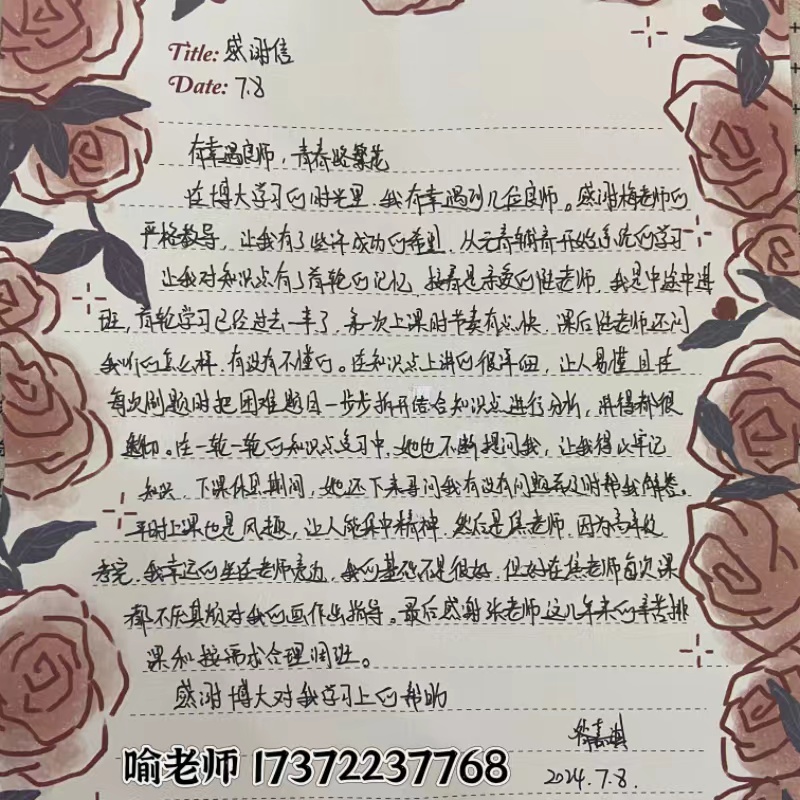 Title: 感谢信
Date: 7.8
有幸遇良师，青春路繁花
在博大学习的时光里，我有幸遇到几位良师。感谢梅老师的
严格教导，让我有了些许成功的希望，从元春朝春开始系统的学习
让我对知识点有了首轮的记忆，接着是亲爱的陆老师，我是中途中进
班，首轮学习已经过去一半了，每次上课时节奏有点快，课后陆老师还问
我听的怎么样，有没有不懂的。在知识点上讲的很详细，让人易懂且在
每次刷题时把困难题目一步步拆开结合知识点进行分析，讲得都很
透彻。在一轮一轮的知识点复习中，她也不断提问我，让我得以牢记
知识，下课休息期间，她还下来寻问我有没有问题并及时帮我解答。
平时上课也是风趣，让人能集中精神，然后是焦老师，因为高年级
考完，我幸运的坐在老师旁边，我的基础不是很好，但好在焦老师每次课
都不厌其烦对我的画作出指导。最后感谢张老师这几年来的辛苦排
课和按需求合理调班。
感谢博大对我学习上的帮助
2024.7.8.
喻老师 17372237768